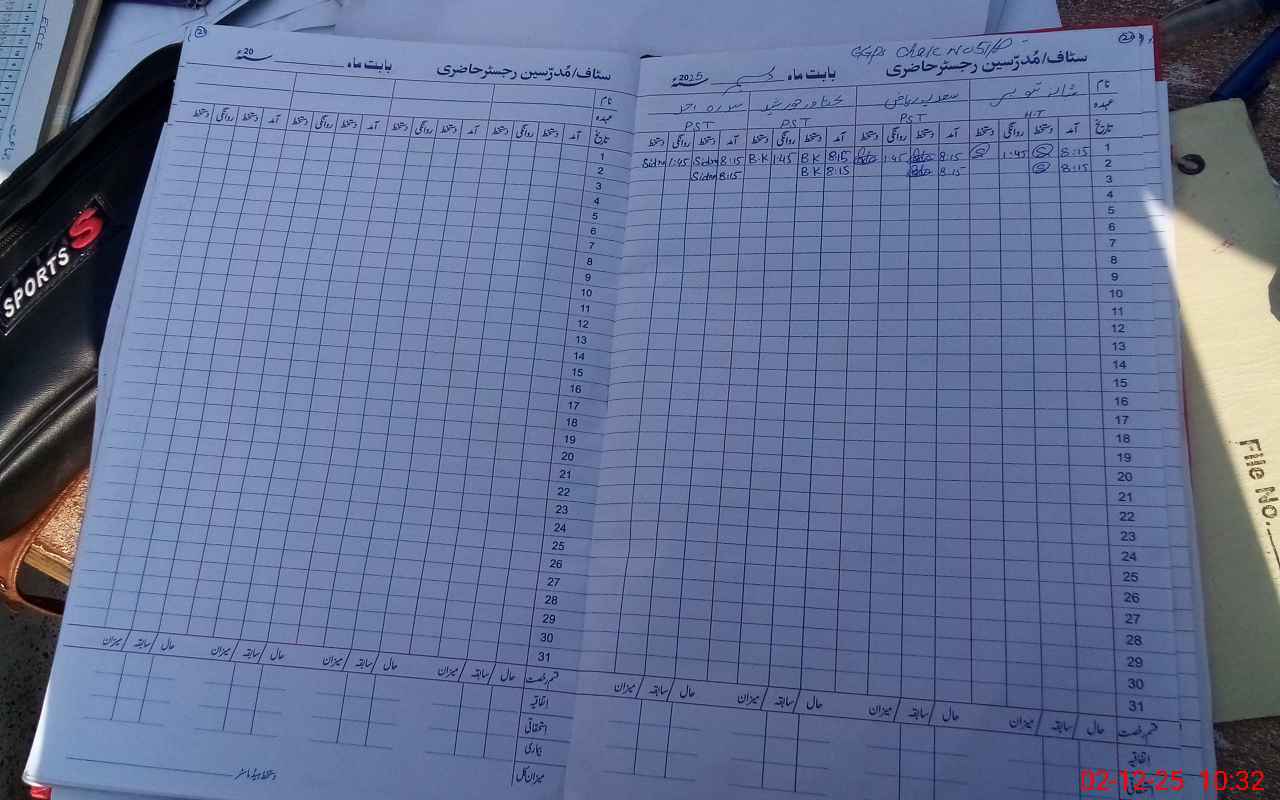 21
GGPS Chak No 51/P
سٹاف/مُدرّسین رجسٹر حاضری بابت ماہ دسمبر سنۃ 2025ء
نام شازیہ تبسم سعدیہ ریاض بختاور خورشید سدرہ احمد
عہدہ H.T PST PST PST
تاریخ آمد دستخط روانگی دستخط آمد دستخط روانگی دستخط آمد دستخط روانگی دستخط آمد دستخط روانگی دستخط
1 8:15 1:45 8:15 1:45 8:15 B K 1:45 B.K 8:15 Sidra 1:45 Sidra
2 8:15 8:15 8:15 B K 8:15 Sidra
3
4
5
6
7
8
9
10
11
12
13
14
15
16
17
18
19
20
21
22
23
24
25
26
27
28
29
30
31
قسم رخصت حال سابقہ میزان حال سابقہ میزان حال سابقہ میزان حال سابقہ میزان
اتفاقیہ
استحقاقی
2
سٹاف/مُدرّسین رجسٹر حاضری بابت ماہ سنۃ 20ء
نام
عہدہ
تاریخ آمد دستخط روانگی دستخط آمد دستخط روانگی دستخط آمد دستخط روانگی دستخط آمد دستخط روانگی دستخط
1
2
3
4
5
6
7
8
9
10
11
12
13
14
15
16
17
18
19
20
21
22
23
24
25
26
27
28
29
30
31
قسم رخصت حال سابقہ میزان حال سابقہ میزان حال سابقہ میزان حال سابقہ میزان
اتفاقیہ
استحقاقی
بیماری
میزان کل
دستخط ہیڈ ماسٹر
SPORTS S
ECCE
File No.
02-12-25 10:32